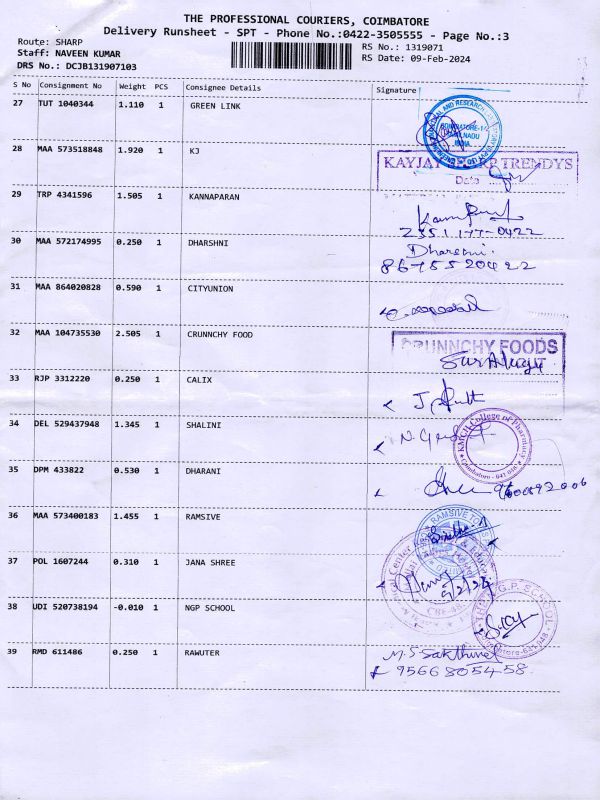 THE PROFESSIONAL COURIERS, COIMBATORE
Delivery Runsheet - SPT - Phone No.:0422-3505555 - Page No.:3
Route: SHARP
RS No.: 1319071
Staff: NAVEEN KUMAR
RS Date: 09-Feb-2024
DRS No.: DCJB131907103
S No Consignment No Weight PCS Consignee Details Signature
27 TUT 1040344 1.110 1 GREEN LINK
28 MAA 573518848 1.920 1 KJ
KAYJAY TRENDYS
Date
29 TRP 4341596 1.505 1 KANNAPARAN
30 MAA 572174995 0.250 1 DHARSHNI
Dharshni.
31 MAA 864020828 0.590 1 CITYUNION
32 MAA 104735530 2.505 1 CRUNNCHY FOOD
CRUNNCHY FOODS
33 RJP 3312220 0.250 1 CALIX
34 DEL 529437948 1.345 1 SHALINI
KMCH College of Pharmacy
35 DPM 433822 0.530 1 DHARANI
36 MAA 573400183 1.455 1 RAMSIVE
37 POL 1607244 0.310 1 JANA SHREE
9/2/24
38 UDI 520738194 -0.010 1 NGP SCHOOL
39 RMD 611486 0.250 1 RAWUTER
9566805458